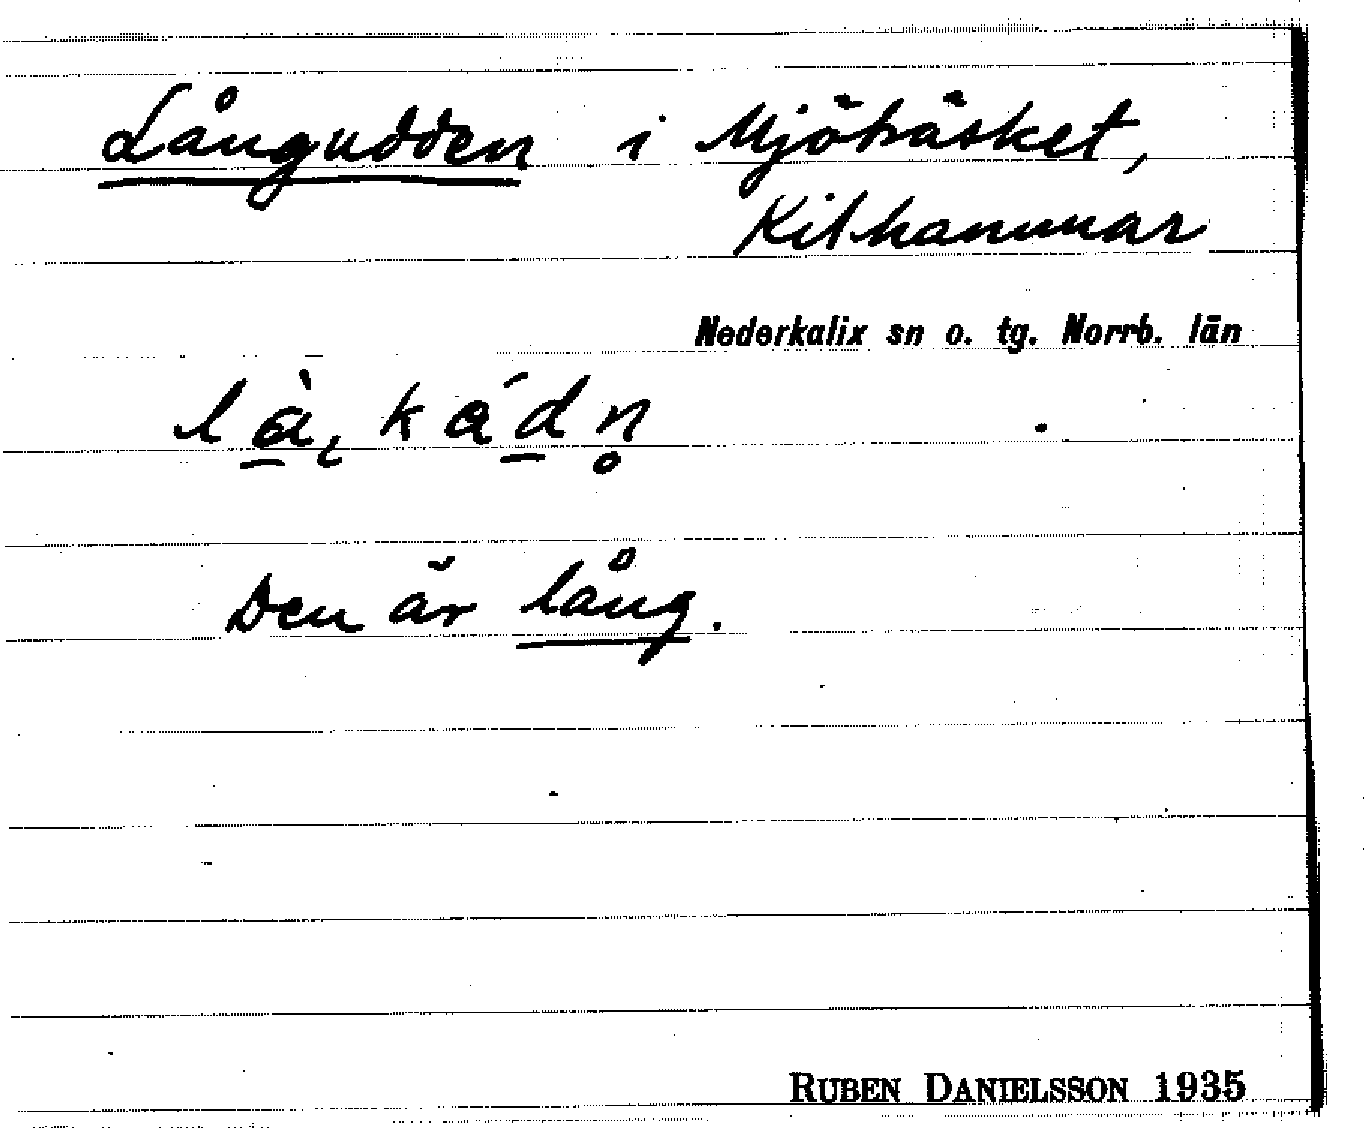 Långudden i Mjöträsket,
Kithammar
Nederkalix sn o. tg. Norrb. län
Den är lång.
RUBEN DANIELSSON 1935